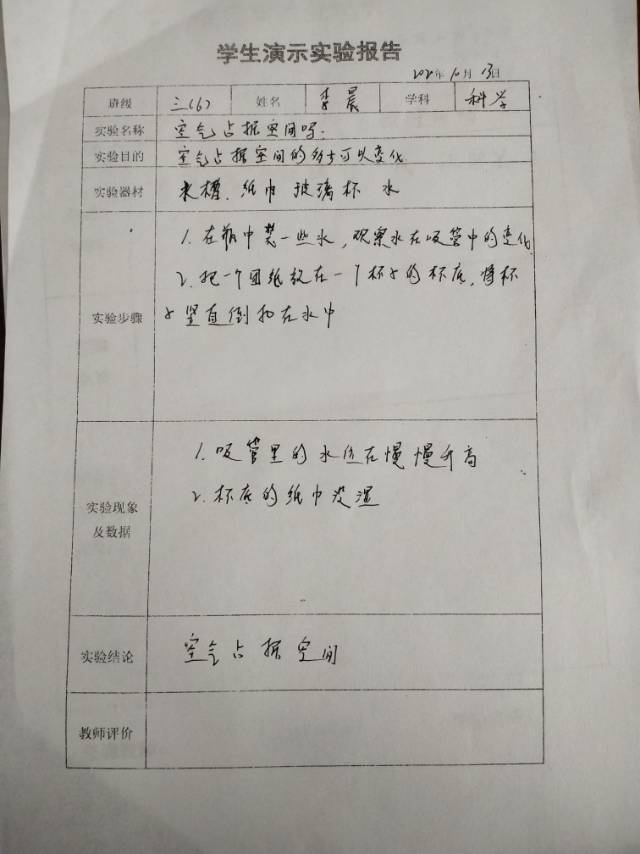 学生演示实验报告
2020年10月13日
班级 三(6) 姓名 李晨 学科 科学
实验名称 空气占据空间吗.
实验目的 空气占据空间的多少可以变化
实验器材 水槽、纸巾 玻璃杯 水
实验步骤
1. 在瓶中装一些水，观察水在吸管中的变化
2. 把一个团纸放在一个杯子的杯底，将杯
子竖直倒扣在水中
实验现象及数据
1. 吸管里的水位在慢慢升高
2. 杯底的纸巾没湿
实验结论 空气占据空间
教师评价